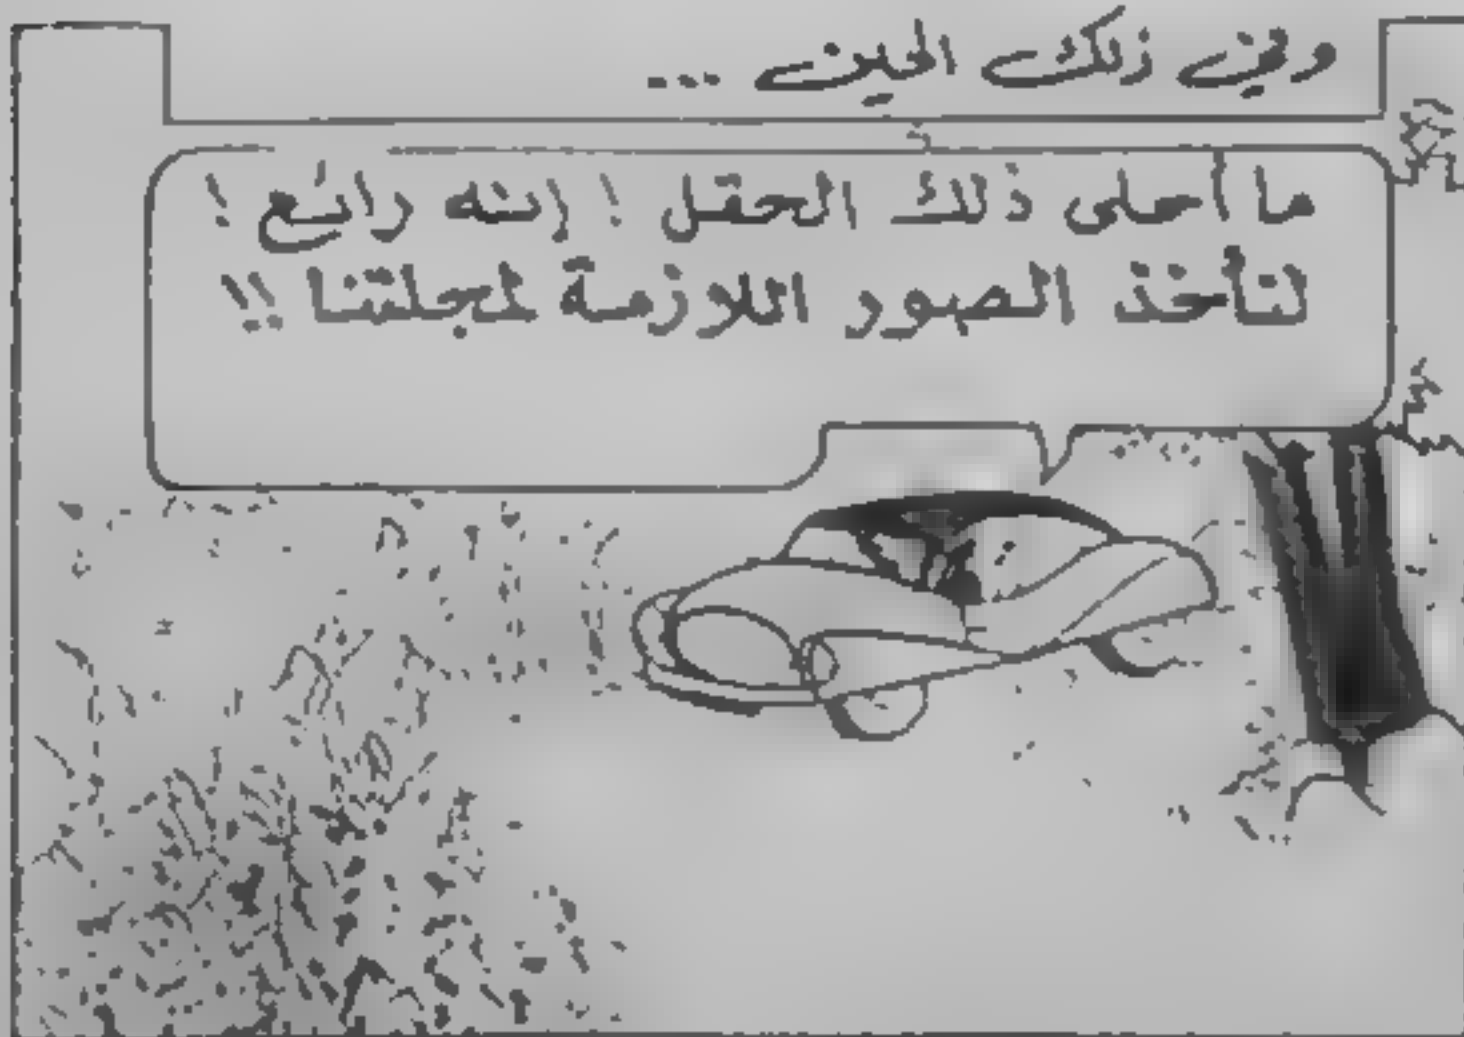 وفي ذلك الحين ...
ما أحلى ذلك الحقل ! إنه رائع !
لنأخذ الصور اللازمة لمجلتنا !!